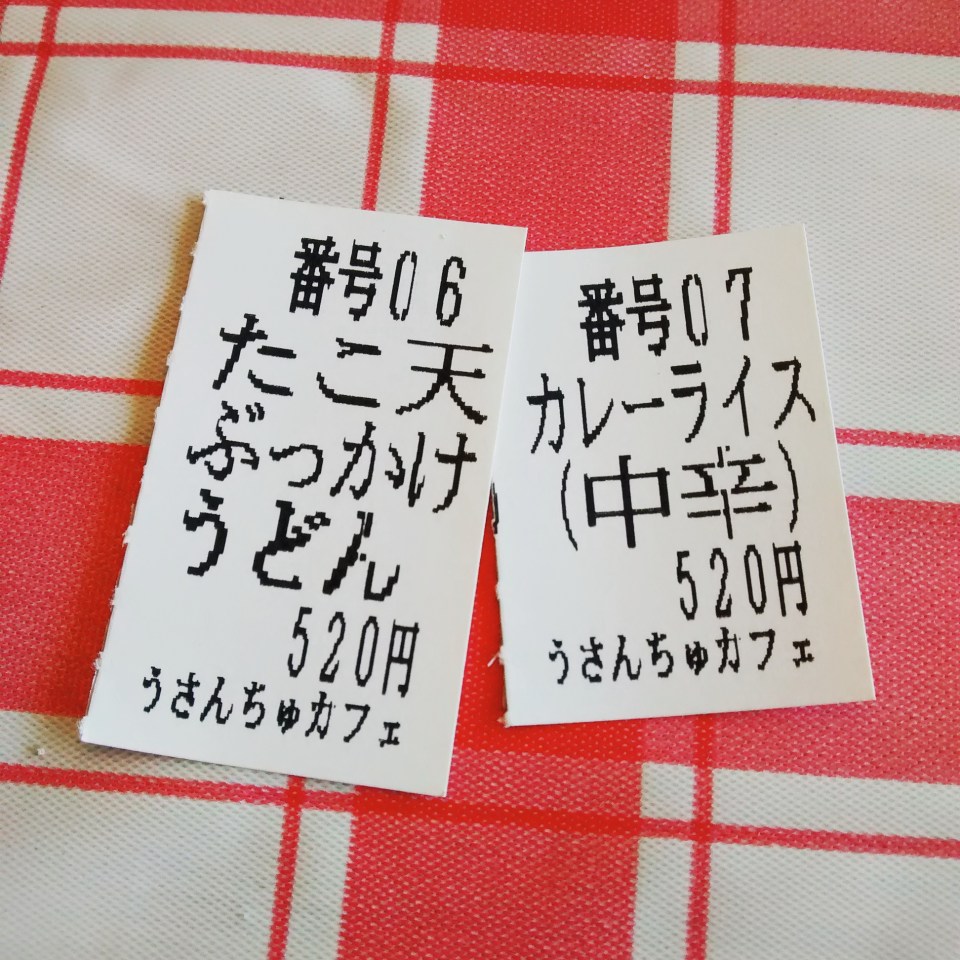 番号06
たこ天
ぶっかけ
うどん
520円
うさんちゅカフェ
番号07
カレーライス
(中辛)
520円
うさんちゅカフェ